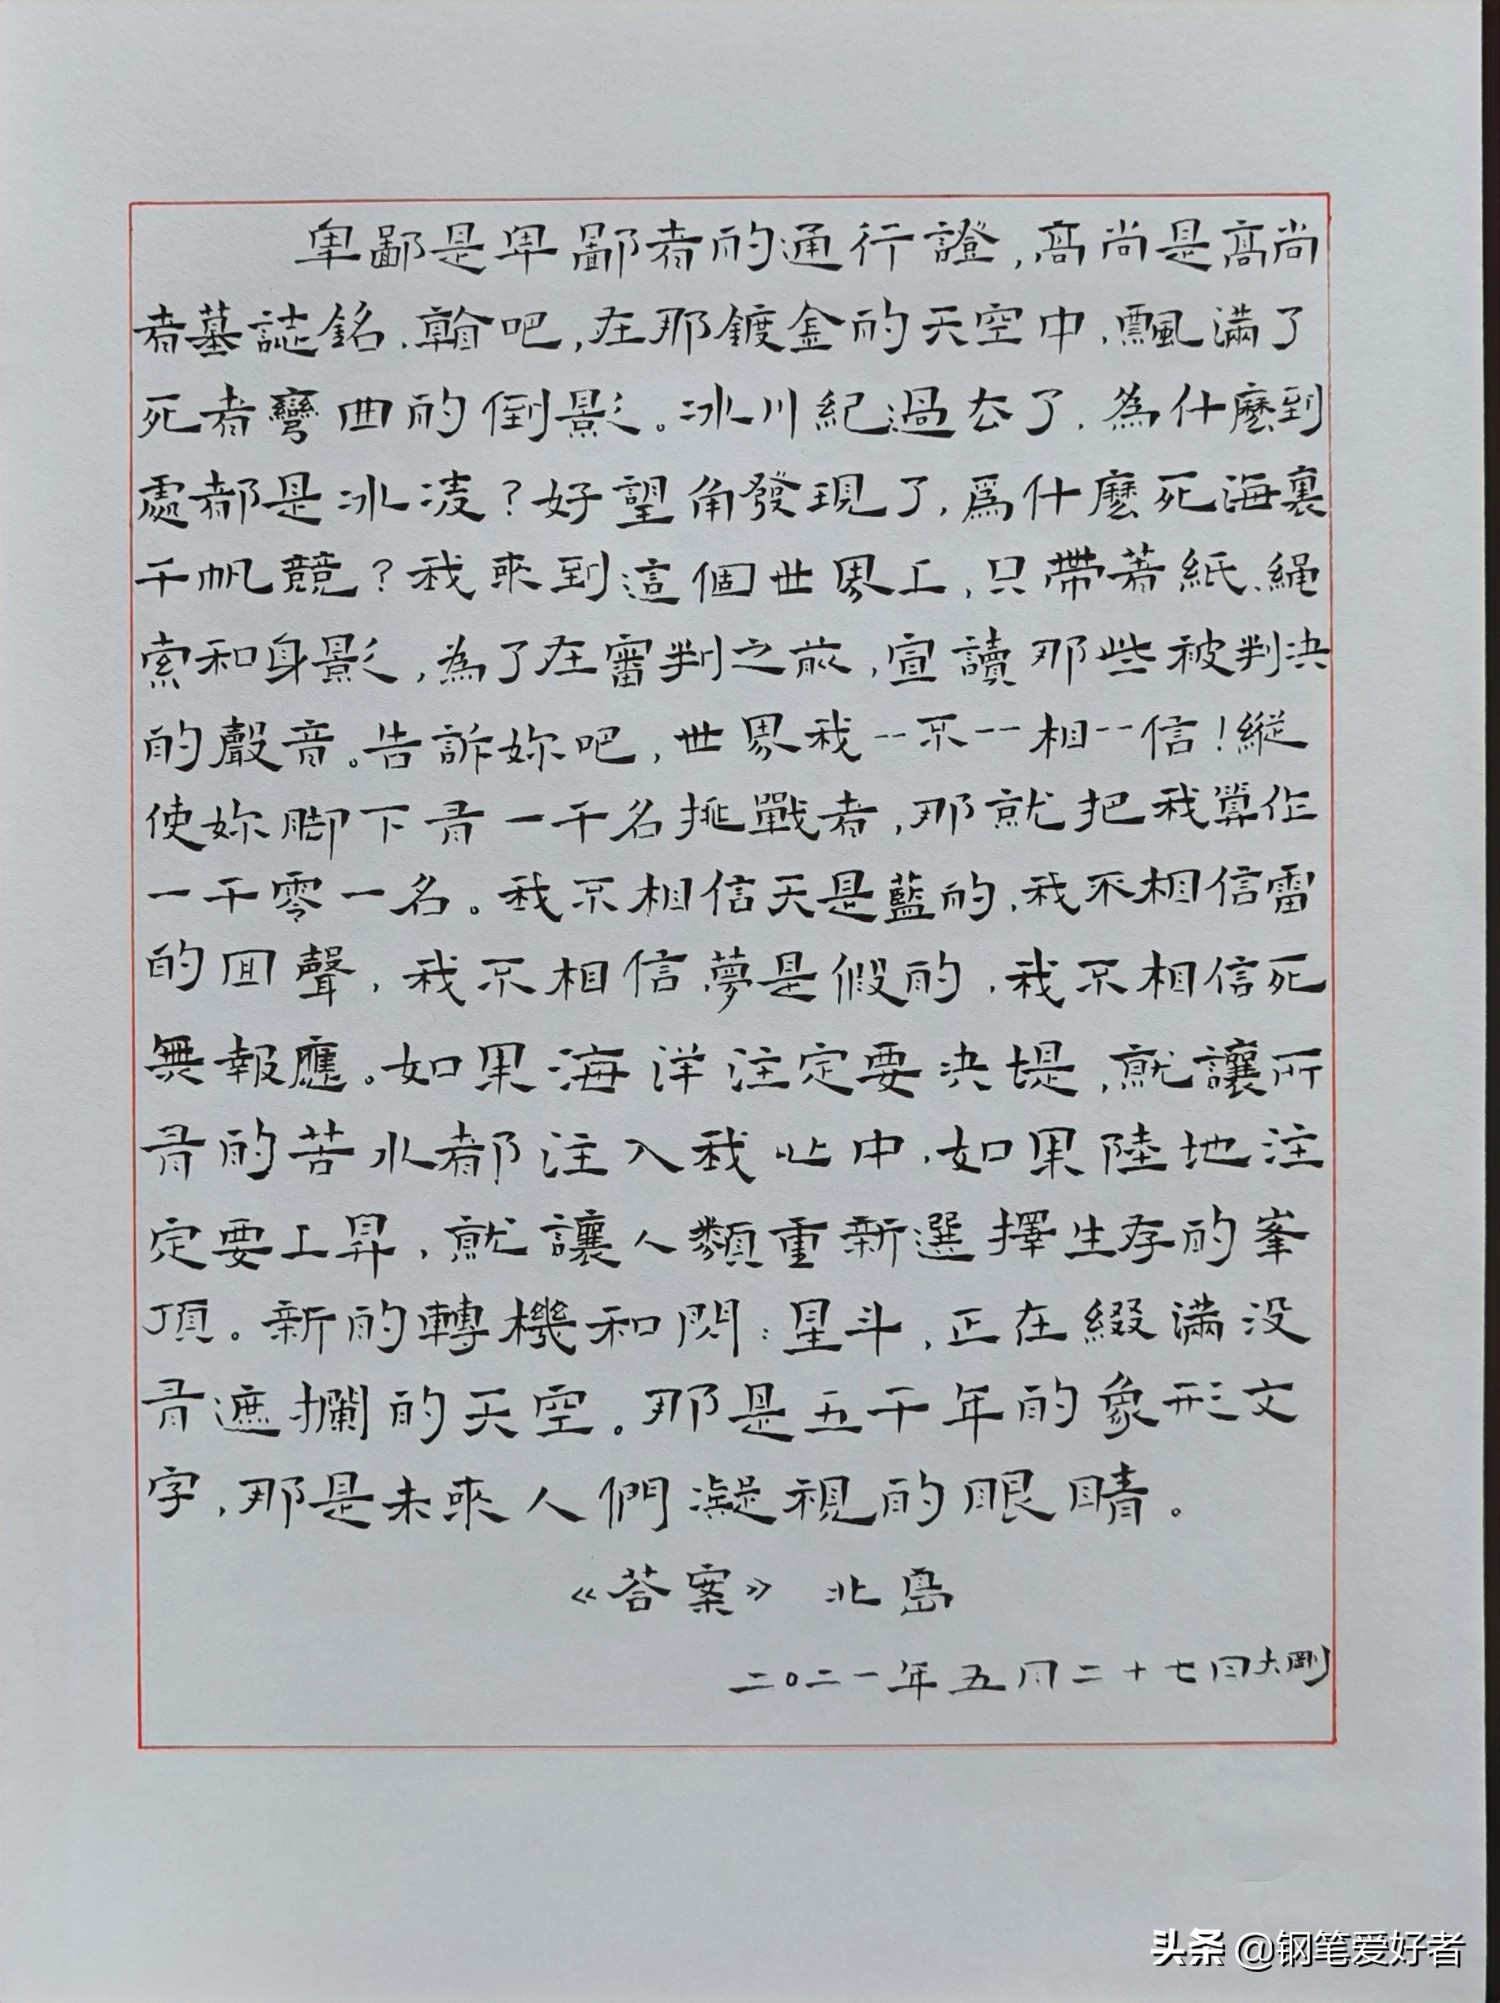 卑鄙是卑鄙者的通行證,高尚是高尚
者墓誌銘.翰吧,在那鍍金的天空中,飄滿了
死者彎曲的倒影。冰川紀過去了,為什麽到
處都是冰凌?好望角發現了,爲什麽死海裏
千帆競?我來到這個世界上,只帶著紙、繩
索和身影,為了在審判之前,宣讀那些被判決
的聲音。告訴妳吧,世界我--不--相--信!縱
使妳腳下有一千名挑戰者,那就把我算作
一千零一名。我不相信天是藍的,我不相信雷
的回聲,我不相信夢是假的,我不相信死
無報應。如果海洋注定要決堤,就讓所
有的苦水都注入我心中,如果陸地注
定要上昇,就讓人類重新選擇生存的峯
頂。新的轉機和閃:星斗,正在綴滿没
有遮攔的天空。那是五千年的象形文
字,那是未來人們凝視的眼睛。
《荅案》 北島
二〇二一年五月二十七日大剛
头条 @钢笔爱好者